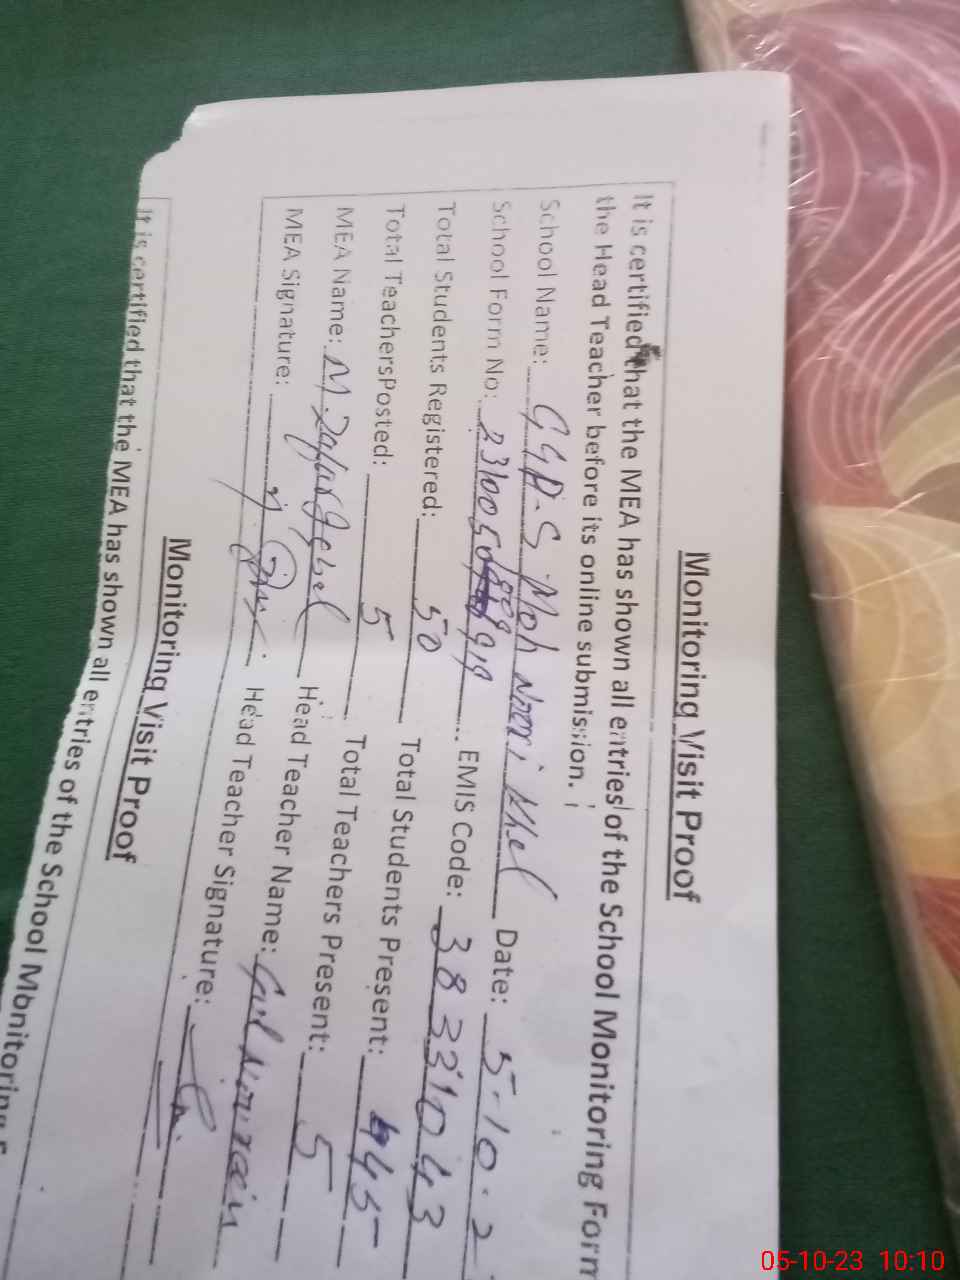 Monitoring Visit Proof
It is certified that the MEA has shown all entries of the School Monitoring Form
the Head Teacher before its online submission.
School Name: Moh Noori Khel Date: 5-10-2
School Form No: EMIS Code: 38331043
Total Students Registered: 50 Total Students Present: 45
Total TeachersPosted: 5 Total Teachers Present: 5
MEA Name: M. Head Teacher Name: Gul
MEA Signature: Head Teacher Signature:
Monitoring Visit Proof
It is certified that the MEA has shown all entries of the School Monitoring F
05-10-23 10:10